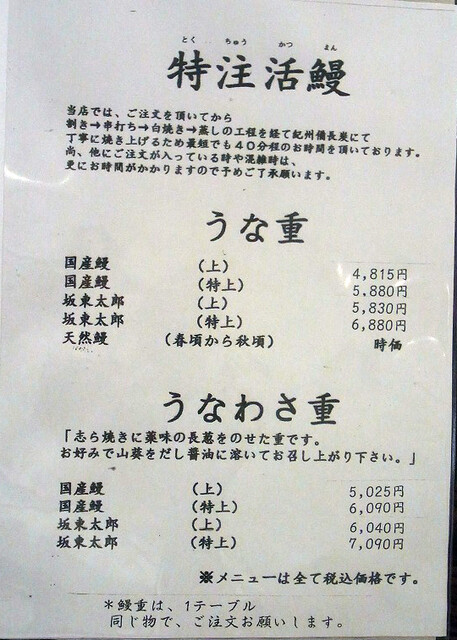 とく ちゅう かつ まん
特注活鰻
当店では、ご注文を頂いてから
割き→串打ち→白焼き→蒸しの工程を経て紀州備長炭にて
丁寧に焼き上げるため最短でも40分程のお時間を頂いております。
尚、他にご注文が入っている時や混雑時は、
更にお時間がかかりますので予めご了承願います。
うな重
国産鰻 (上) 4,815円
国産鰻 (特上) 5,880円
坂東太郎 (上) 5,830円
坂東太郎 (特上) 6,880円
天然鰻 (春頃から秋頃) 時価
うなわさ重
「志ら焼きに薬味の長葱をのせた重です。
お好みで山葵をだし醤油に溶いてお召し上がり下さい。」
国産鰻 (上) 5,025円
国産鰻 (特上) 6,090円
坂東太郎 (上) 6,040円
坂東太郎 (特上) 7,090円
※メニューは全て税込価格です。
＊鰻重は、1テーブル
同じ物で、ご注文お願いします。